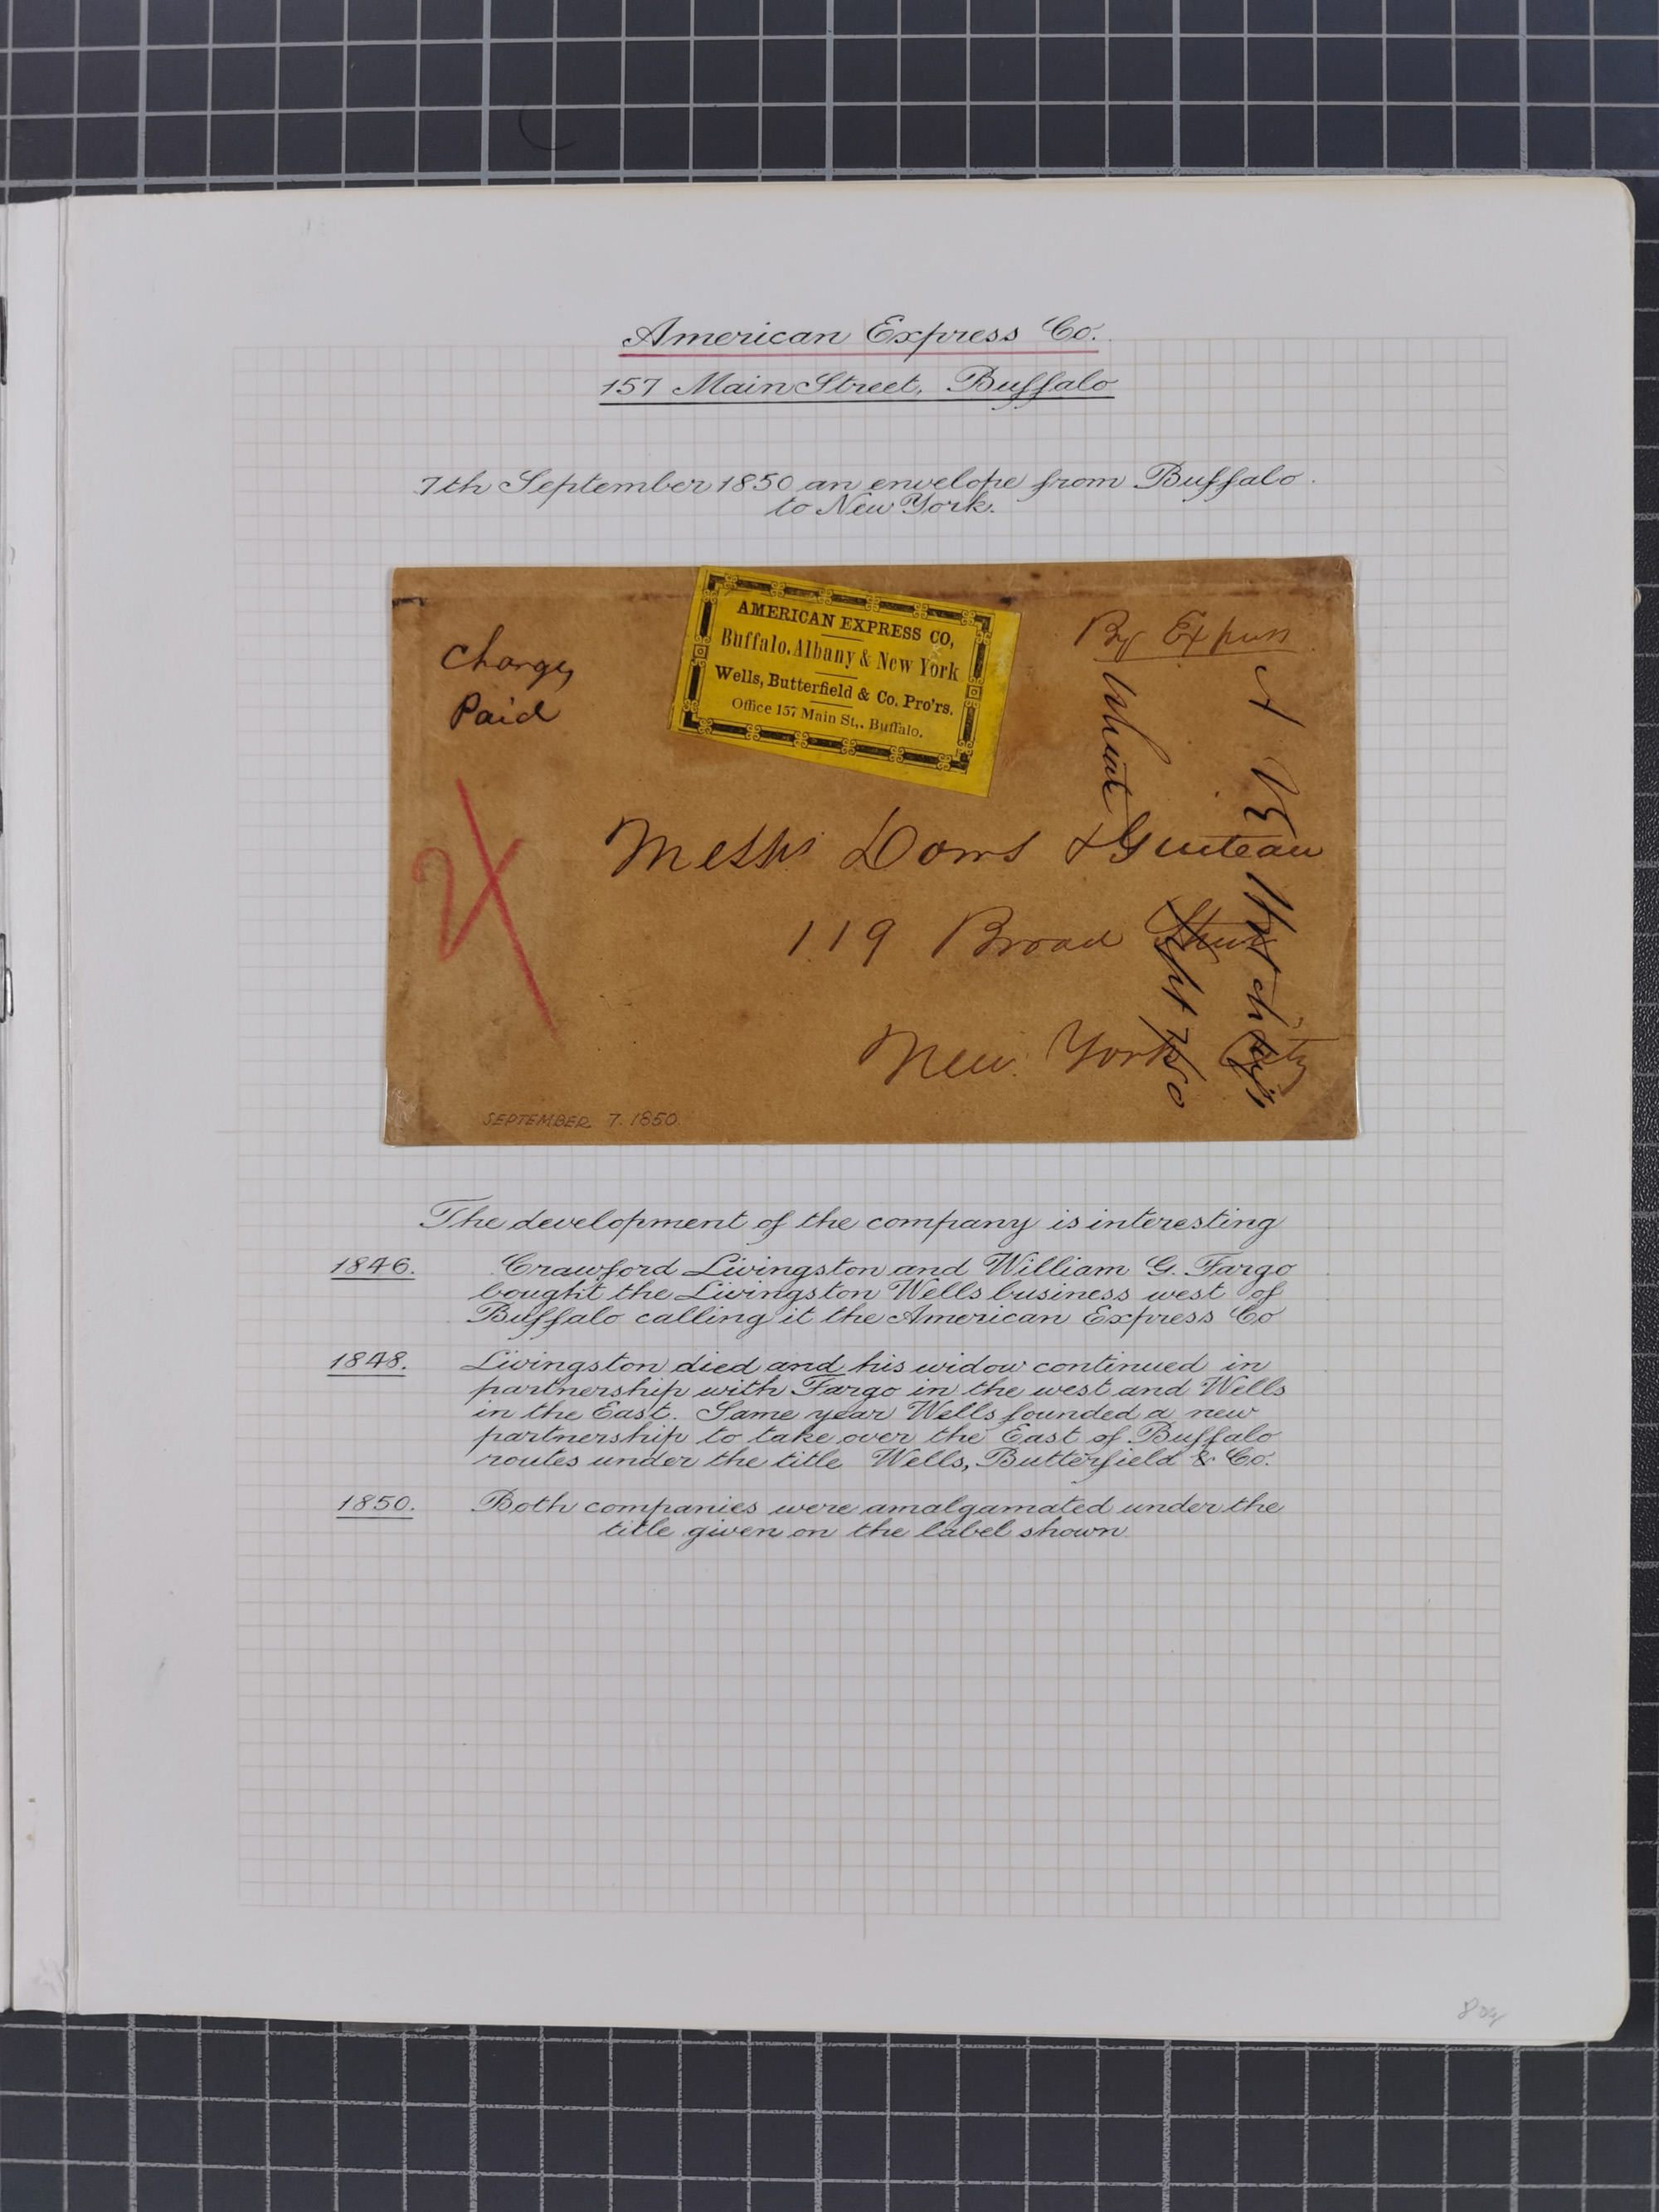 American Express Co.
157 Main Street, Buffalo
7th September 1850 an envelope from Buffalo.
to New York.
Charge,
Paid
AMERICAN EXPRESS CO,
Buffalo. Albany & New York
Wells, Butterfield & Co. Pro'rs.
Office 157 Main St,. Buffalo.
By Express
Wheat
Sept 7/50
Messrs Dows & Guiteau
119 Broad Street
New York City
SEPTEMBER 7. 1850
The development of the company is interesting
1846. Crawford Livingston and William G. Fargo
bought the Livingston Wells business west of
Buffalo calling it the American Express Co
1848. Livingston died and his widow continued in
partnership with Fargo in the west and Wells
in the East. Same year Wells founded a new
partnership to take over the East of Buffalo
routes under the title Wells, Butterfield & Co.
1850. Both companies were amalgamated under the
title given on the label shown